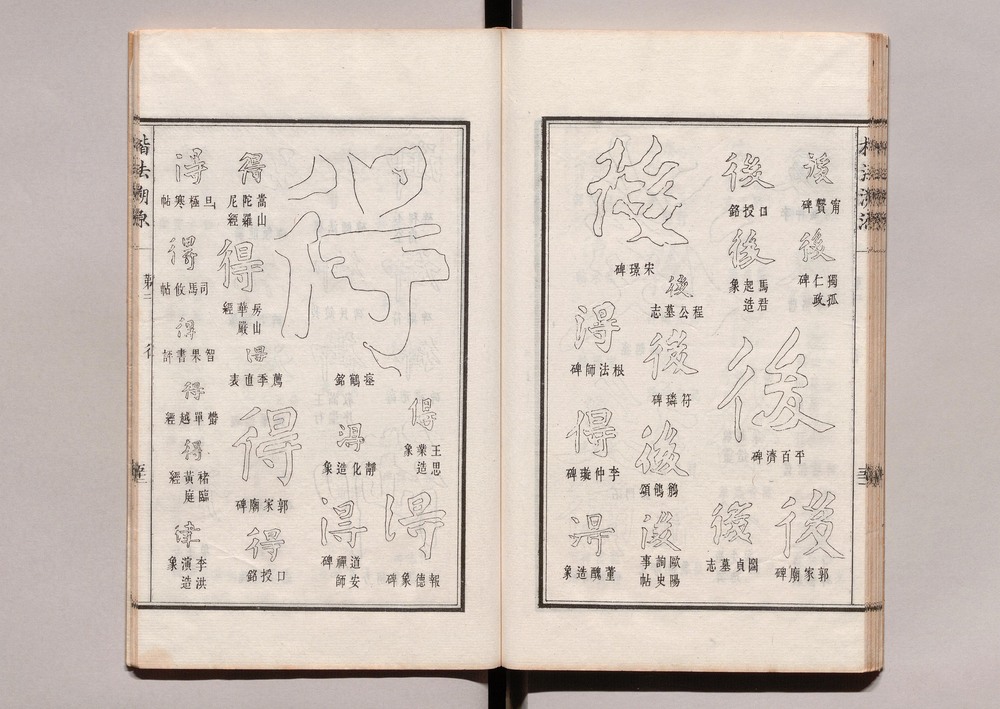 後
甯贙碑
後
獨孤仁政碑
後
口授銘
後
馬君起造象
後
平百濟碑
後
郭家廟碑
後
貞墓志
後
宋璟碑
後
程公墓志
後
符璘碑
後
鶺鴒頌
後
歐陽詢史事帖
得
根法師碑
得
李仲璇碑
得
董醜造象
得
瘞鶴銘
得
王思業造象
得
報德象碑
得
靜化造象
得
道安禪師碑
得
嵩山陀羅尼經
得
房山華嚴經
得
薦季直表
得
郭家廟碑
得
口授銘
得
旦極寒帖
得
司馬攸帖
得
智果書評
得
單越經
得
褚臨黃庭經
律
李洪演造象
楷法溯源